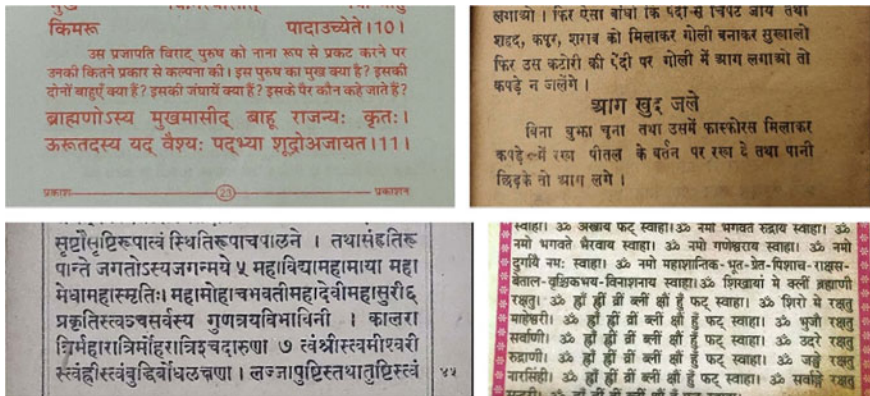 किमरू पादाउच्येते।10।
उस प्रजापति विराट् पुरुष को नाना रूप से प्रकट करने पर
उनकी कितने प्रकार से कल्पना की। इस पुरुष का मुख क्या है? इसकी
दोनों बाहुएँ क्या हैं? इसकी जंघायें क्या हैं? इसके पैर कौन कहे जाते हैं?
ब्राह्मणोऽस्य मुखमासीद् बाहू राजन्यः कृतः।
ऊरूतदस्य यद् वैश्यः पद्भ्या शूद्रोअजायत।11।
प्रकाश 23 प्रकाशन
लगाओ । फिर ऐसा बांधो कि पेंदी से चिपट जाय तथा
शहद, कपूर, शराब को मिलाकर गोली बनाकर सुखालो
फिर उस कटोरी की ऐंदी पर गोली में आग लगाओ तो
कपड़े न जलेंगे ।
आग खुद जले
बिना बुझा चूना तथा उसमें फास्फोरस मिलाकर
कपड़े में रख पीतल के बर्तन पर रख दे तथा पानी
छिड़के तो आग लगे ।
सृष्टौसृष्टिरूपात्वं स्थितिरूपाचपालने । तथासंहृतिरू
पान्ते जगतोऽस्यजगन्मये ५ महाविद्यामहामाया महा
मेधामहास्मृतिः। महामोहाचभवतीमहादेवीमहासुरी६
प्रकृतिस्त्वञ्चसर्वस्य गुणत्रयविभाविनी । कालरा
त्रिर्महारात्रिर्मोहरात्रिश्चदारुणा ७ त्वंश्रीस्त्वमीश्वरी
स्त्वंह्रीस्त्वंबुद्धिर्बोधलक्षणा । लज्जापुष्टिस्तथातुष्टिस्त्वं ४५
स्वाहा। ॐ अस्त्राय फट् स्वाहा। ॐ नमो भगवते रुद्राय स्वाहा। ॐ
नमो भगवते भैरवाय स्वाहा। ॐ नमो गणेश्वराय स्वाहा। ॐ नमो
दुर्गायै नमः स्वाहा। ॐ नमो महाशान्तिक-भूत-प्रेत-पिशाच-राक्षस-
बेताल-वृश्चिकभय-विनाशनाय स्वाहा। ॐ शिखायां मे क्लीं ब्रह्माणी
रक्षतु। ॐ ह्रां ह्रीं व्रीं क्लीं क्षौं हुँ फट् स्वाहा। ॐ शिरो मे रक्षतु
माहेश्वरी। ॐ ह्राँ ह्रीं व्रीं क्लीं क्षौं हुँ फट् स्वाहा। ॐ भुजौ रक्षतु
सर्वाणी। ॐ ह्राँ ह्रीं व्रीं क्लीं क्षौं हुँ फट् स्वाहा। ॐ उदरे रक्षतु
रुद्राणी। ॐ ह्राँ ह्रीं व्रीं क्लीं क्षौं हुँ फट् स्वाहा। ॐ जङ्घे रक्षतु
नारसिंही। ॐ ह्राँ ह्रीं व्रीं क्लीं क्षौं हुँ फट् स्वाहा। ॐ सर्वाङ्गे रक्षतु